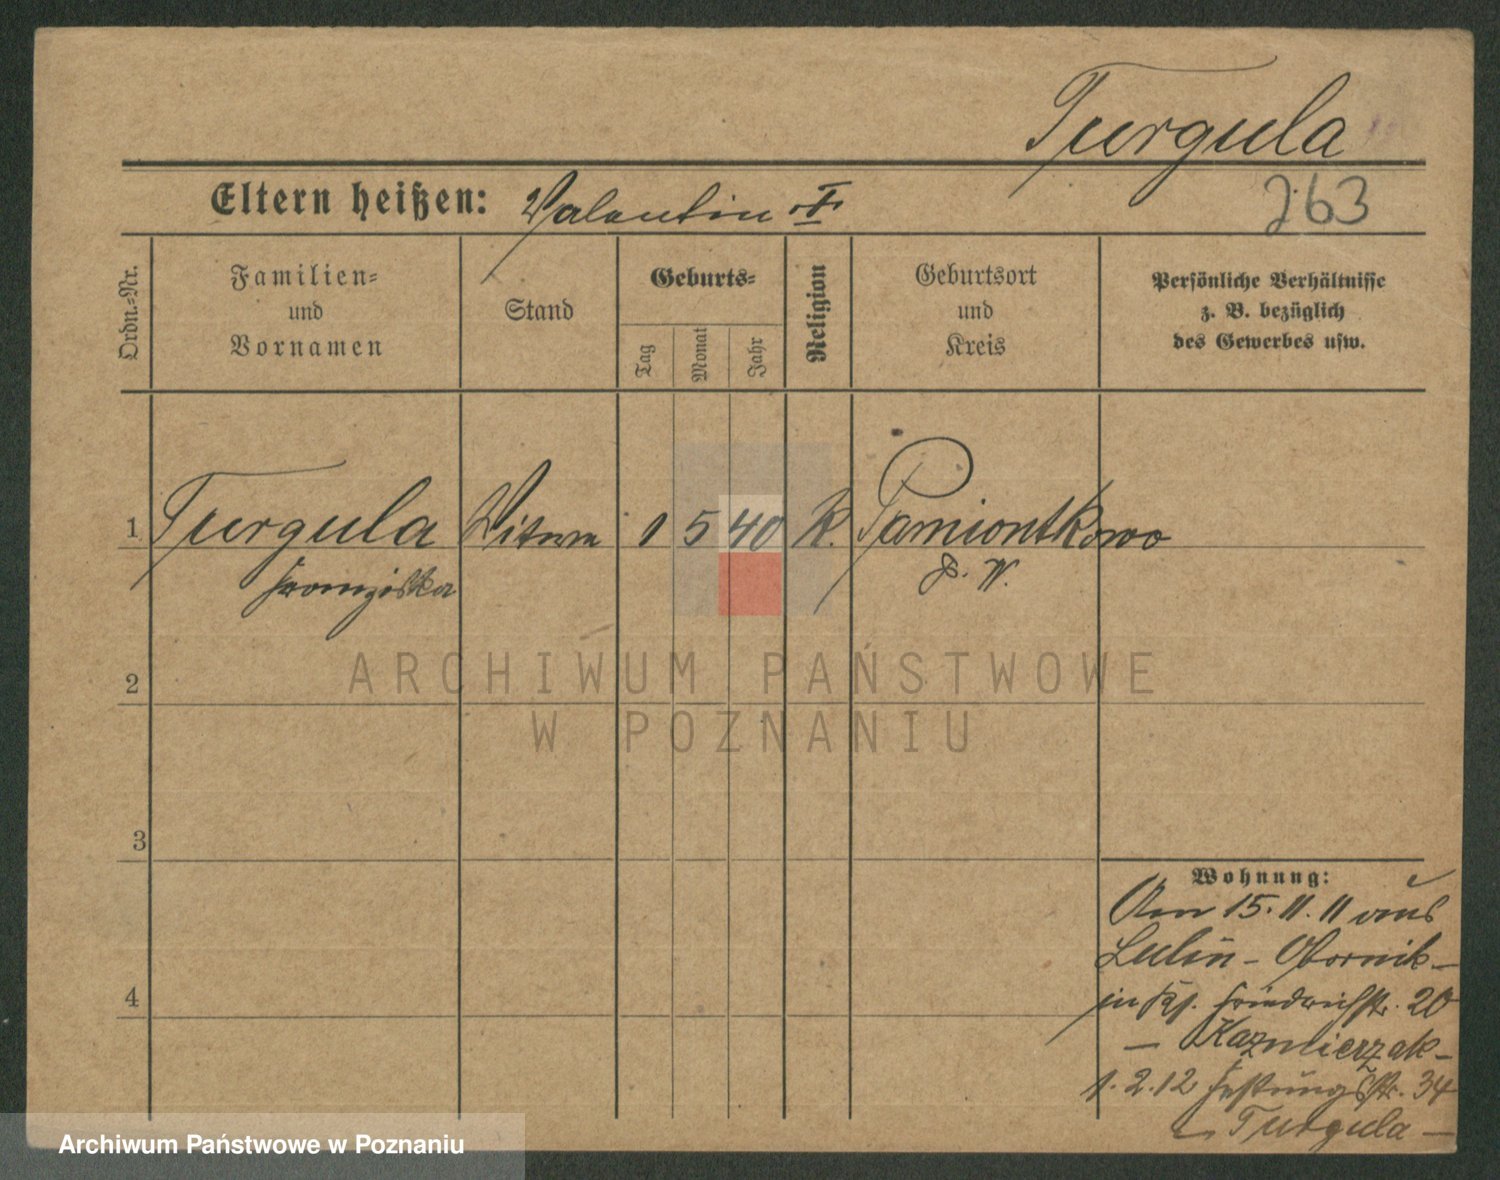 Turgula
Eltern heißen: Valentin T.
263
Ordn.-Nr.
Familien-
und
Vornamen
Stand
Geburts-
Tag
Monat
Jahr
Religion
Geburtsort
und
Kreis
Persönliche Verhältnisse
z. B. bezüglich
des Gewerbes usw.
1 Turgula Witwe 1 5 40 K. Pamiontkowo
Franziska P. W.
2
3
4
Wohnung:
Am 15.11.11 aus
Lulin - Obornik -
in Friedrichstr. 20
- Kazmierzak -
1.2.12 Festungsstr. 34
- Turgula -
ARCHIWUM PAŃSTWOWE
W POZNANIU
Archiwum Państwowe w Poznaniu